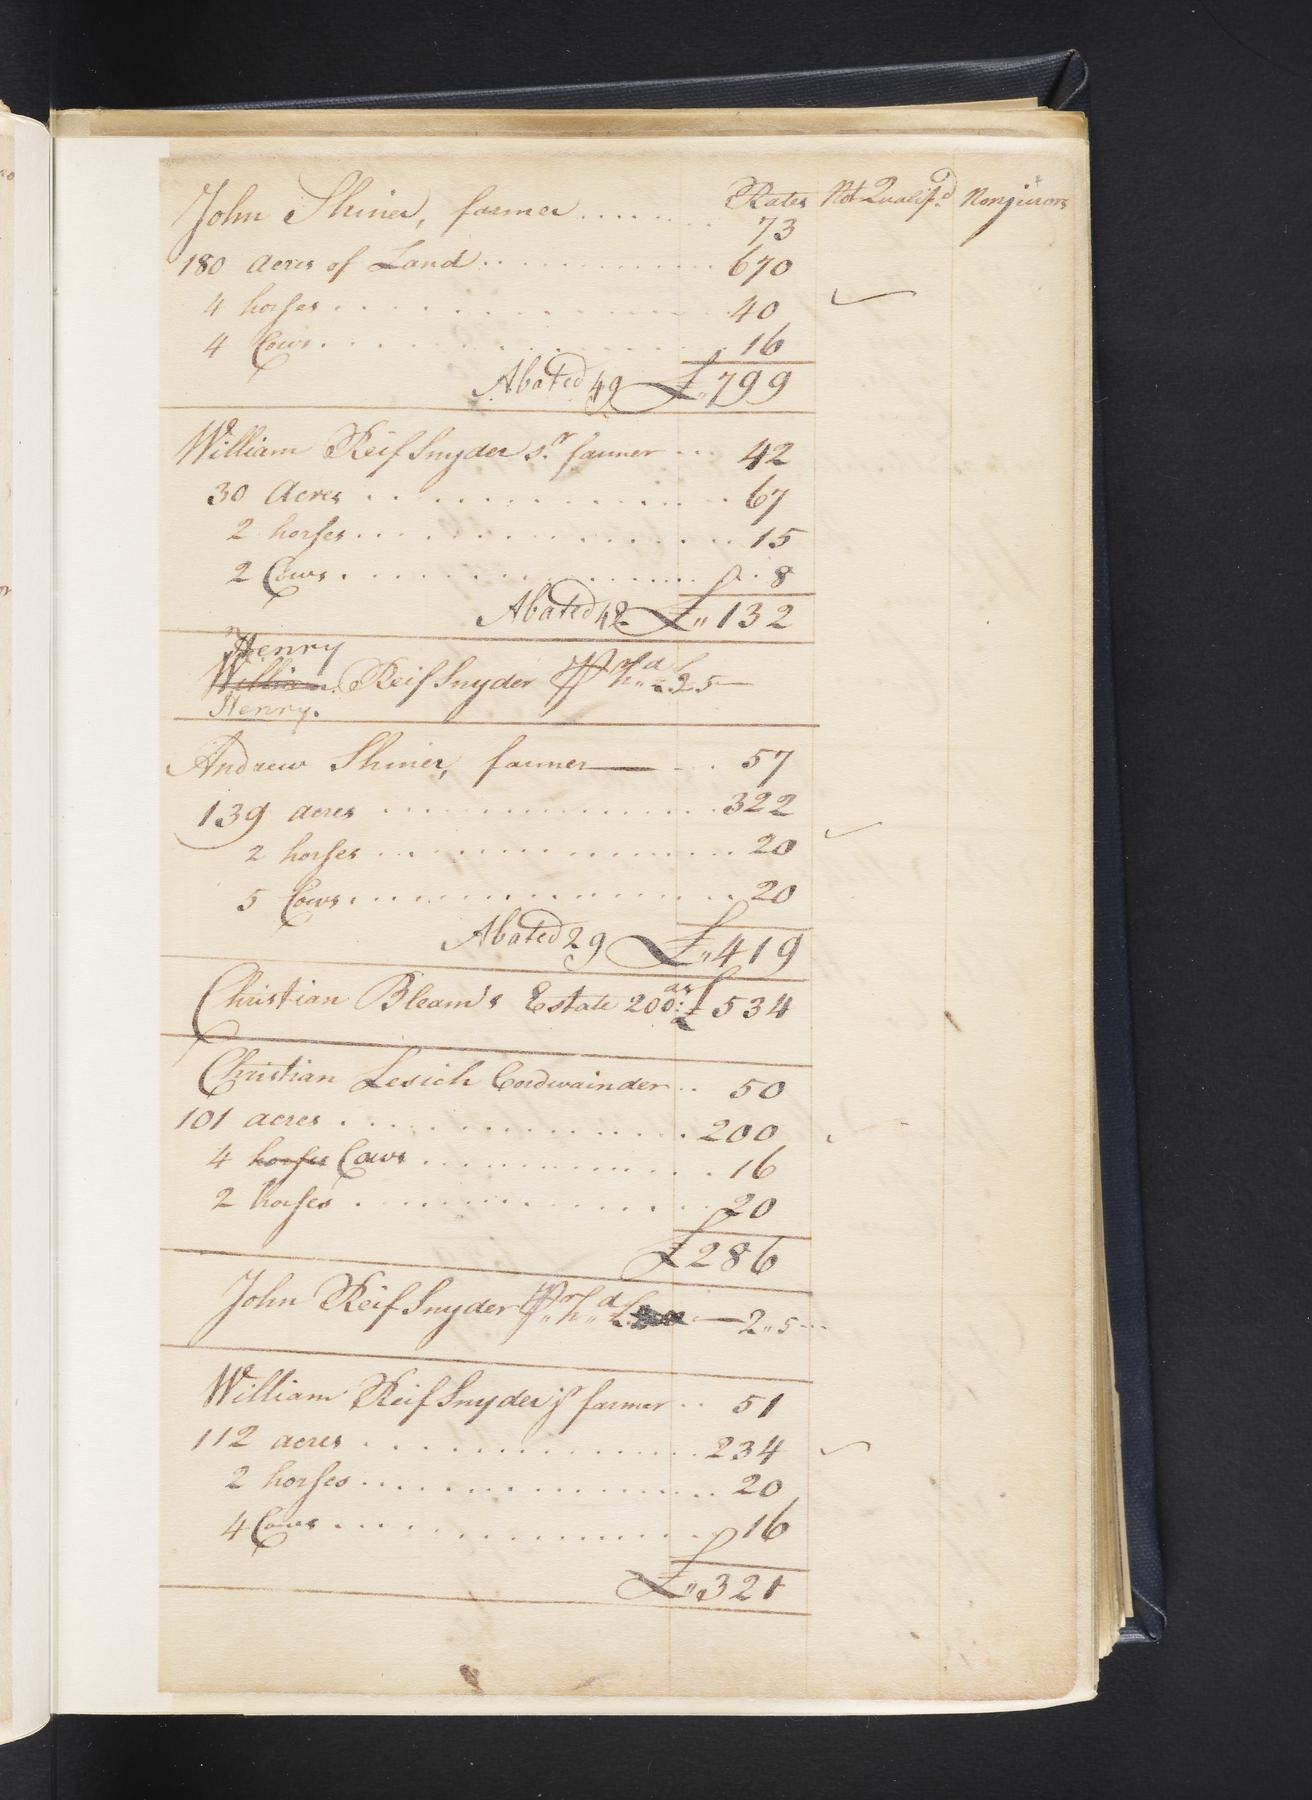 Rates Not Qualif.d Nonjurors
John Shiner, farmer ...... 73
180 acres of Land .......... 670
4 horses .......... 40
4 Cows .......... 16
Abated 49 £"799
William Reif Snyder s.r farmer ... 42
30 Acres .......... 67
2 horses .......... 15
2 Cows .......... 8
Abated 42 £"132
Henry
William Reif Snyder P.r h"d £25—
Henry.
Andrew Shiner, farmer — .. 57
139 acres .......... 322
2 horses .......... 20
5 Cows .......... 20
Abated 29 £"419
Christian Bleam's Estate 200 as: £ 534
Christian Lesich Cordwainder .. 50
101 acres .......... 200
4 horses Cows .......... 16
2 horses .......... 20
£286
John Reif Snyder P.r h"d — 2"5--
William Reif Snyder j.r farmer .. 51
112 acres .......... 234
2 horses .......... 20
4 Cows .......... 16
£"321